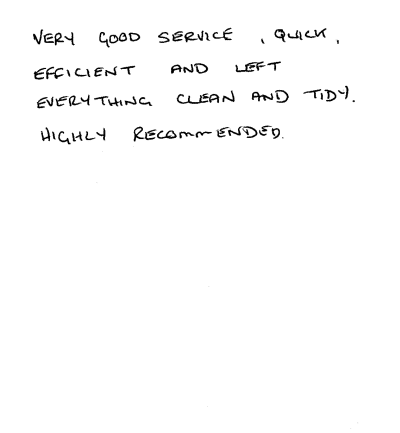 VERY GOOD SERVICE , QUICK,
EFFICIENT AND LEFT
EVERYTHING CLEAN AND TIDY.
HIGHLY RECOMMENDED.